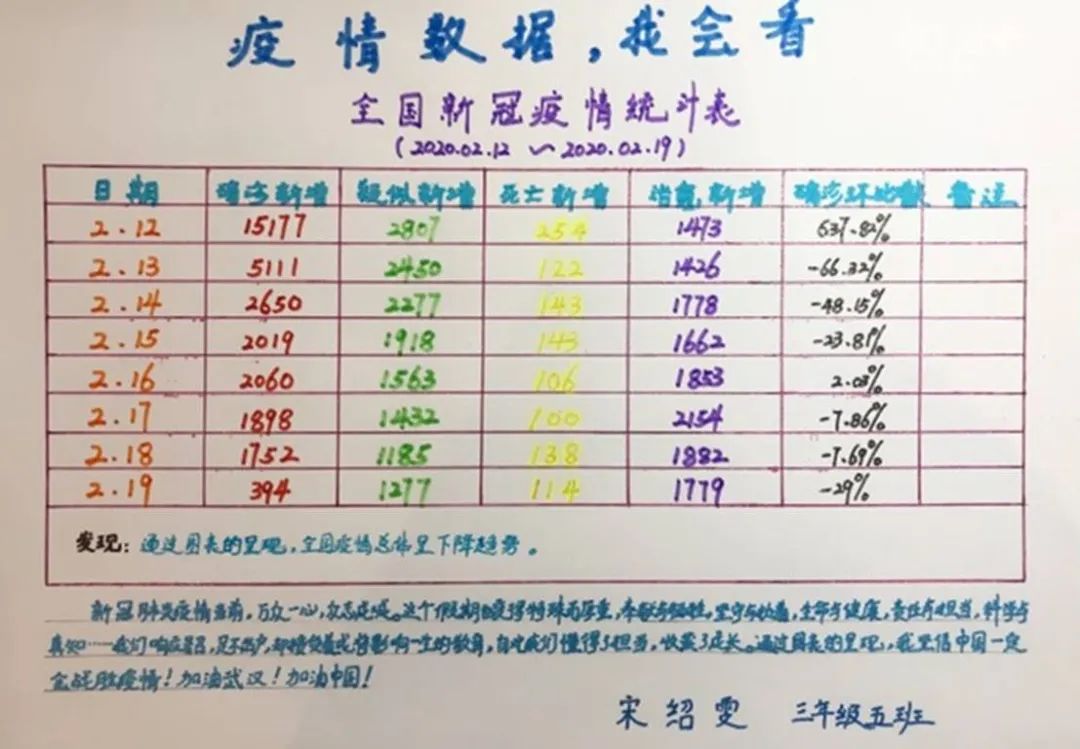 疫情数据,我会看
全国新冠疫情统计表
(2020.02.12 ~ 2020.02.19)
日期 确诊新增 疑似新增 死亡新增 治愈新增 确诊环比 备注
2.12 15177 2807 254 1473 637.82%
2.13 5111 2450 122 1426 -66.32%
2.14 2650 2277 143 1778 -48.15%
2.15 2019 1918 143 1662 -23.81%
2.16 2060 1563 106 1853 2.03%
2.17 1898 1432 100 2154 -7.86%
2.18 1752 1185 138 1882 -7.69%
2.19 394 1277 114 1779 -29%
发现:通过图表的呈现,全国疫情总体呈下降趋势。
新冠肺炎疫情当前,万众一心,众志成城。这个假期变得特殊而厚重,奉献与牺牲,坚守与执着,生命与健康,责任与担当,科学与
真知……我们响应号召,足不出户,却接受着或将影响一生的教育,自此我们懂得了担当,收获了成长。通过图表的呈现,我坚信中国一定
会战胜疫情!加油武汉!加油中国!
宋绍雯 三年级五班